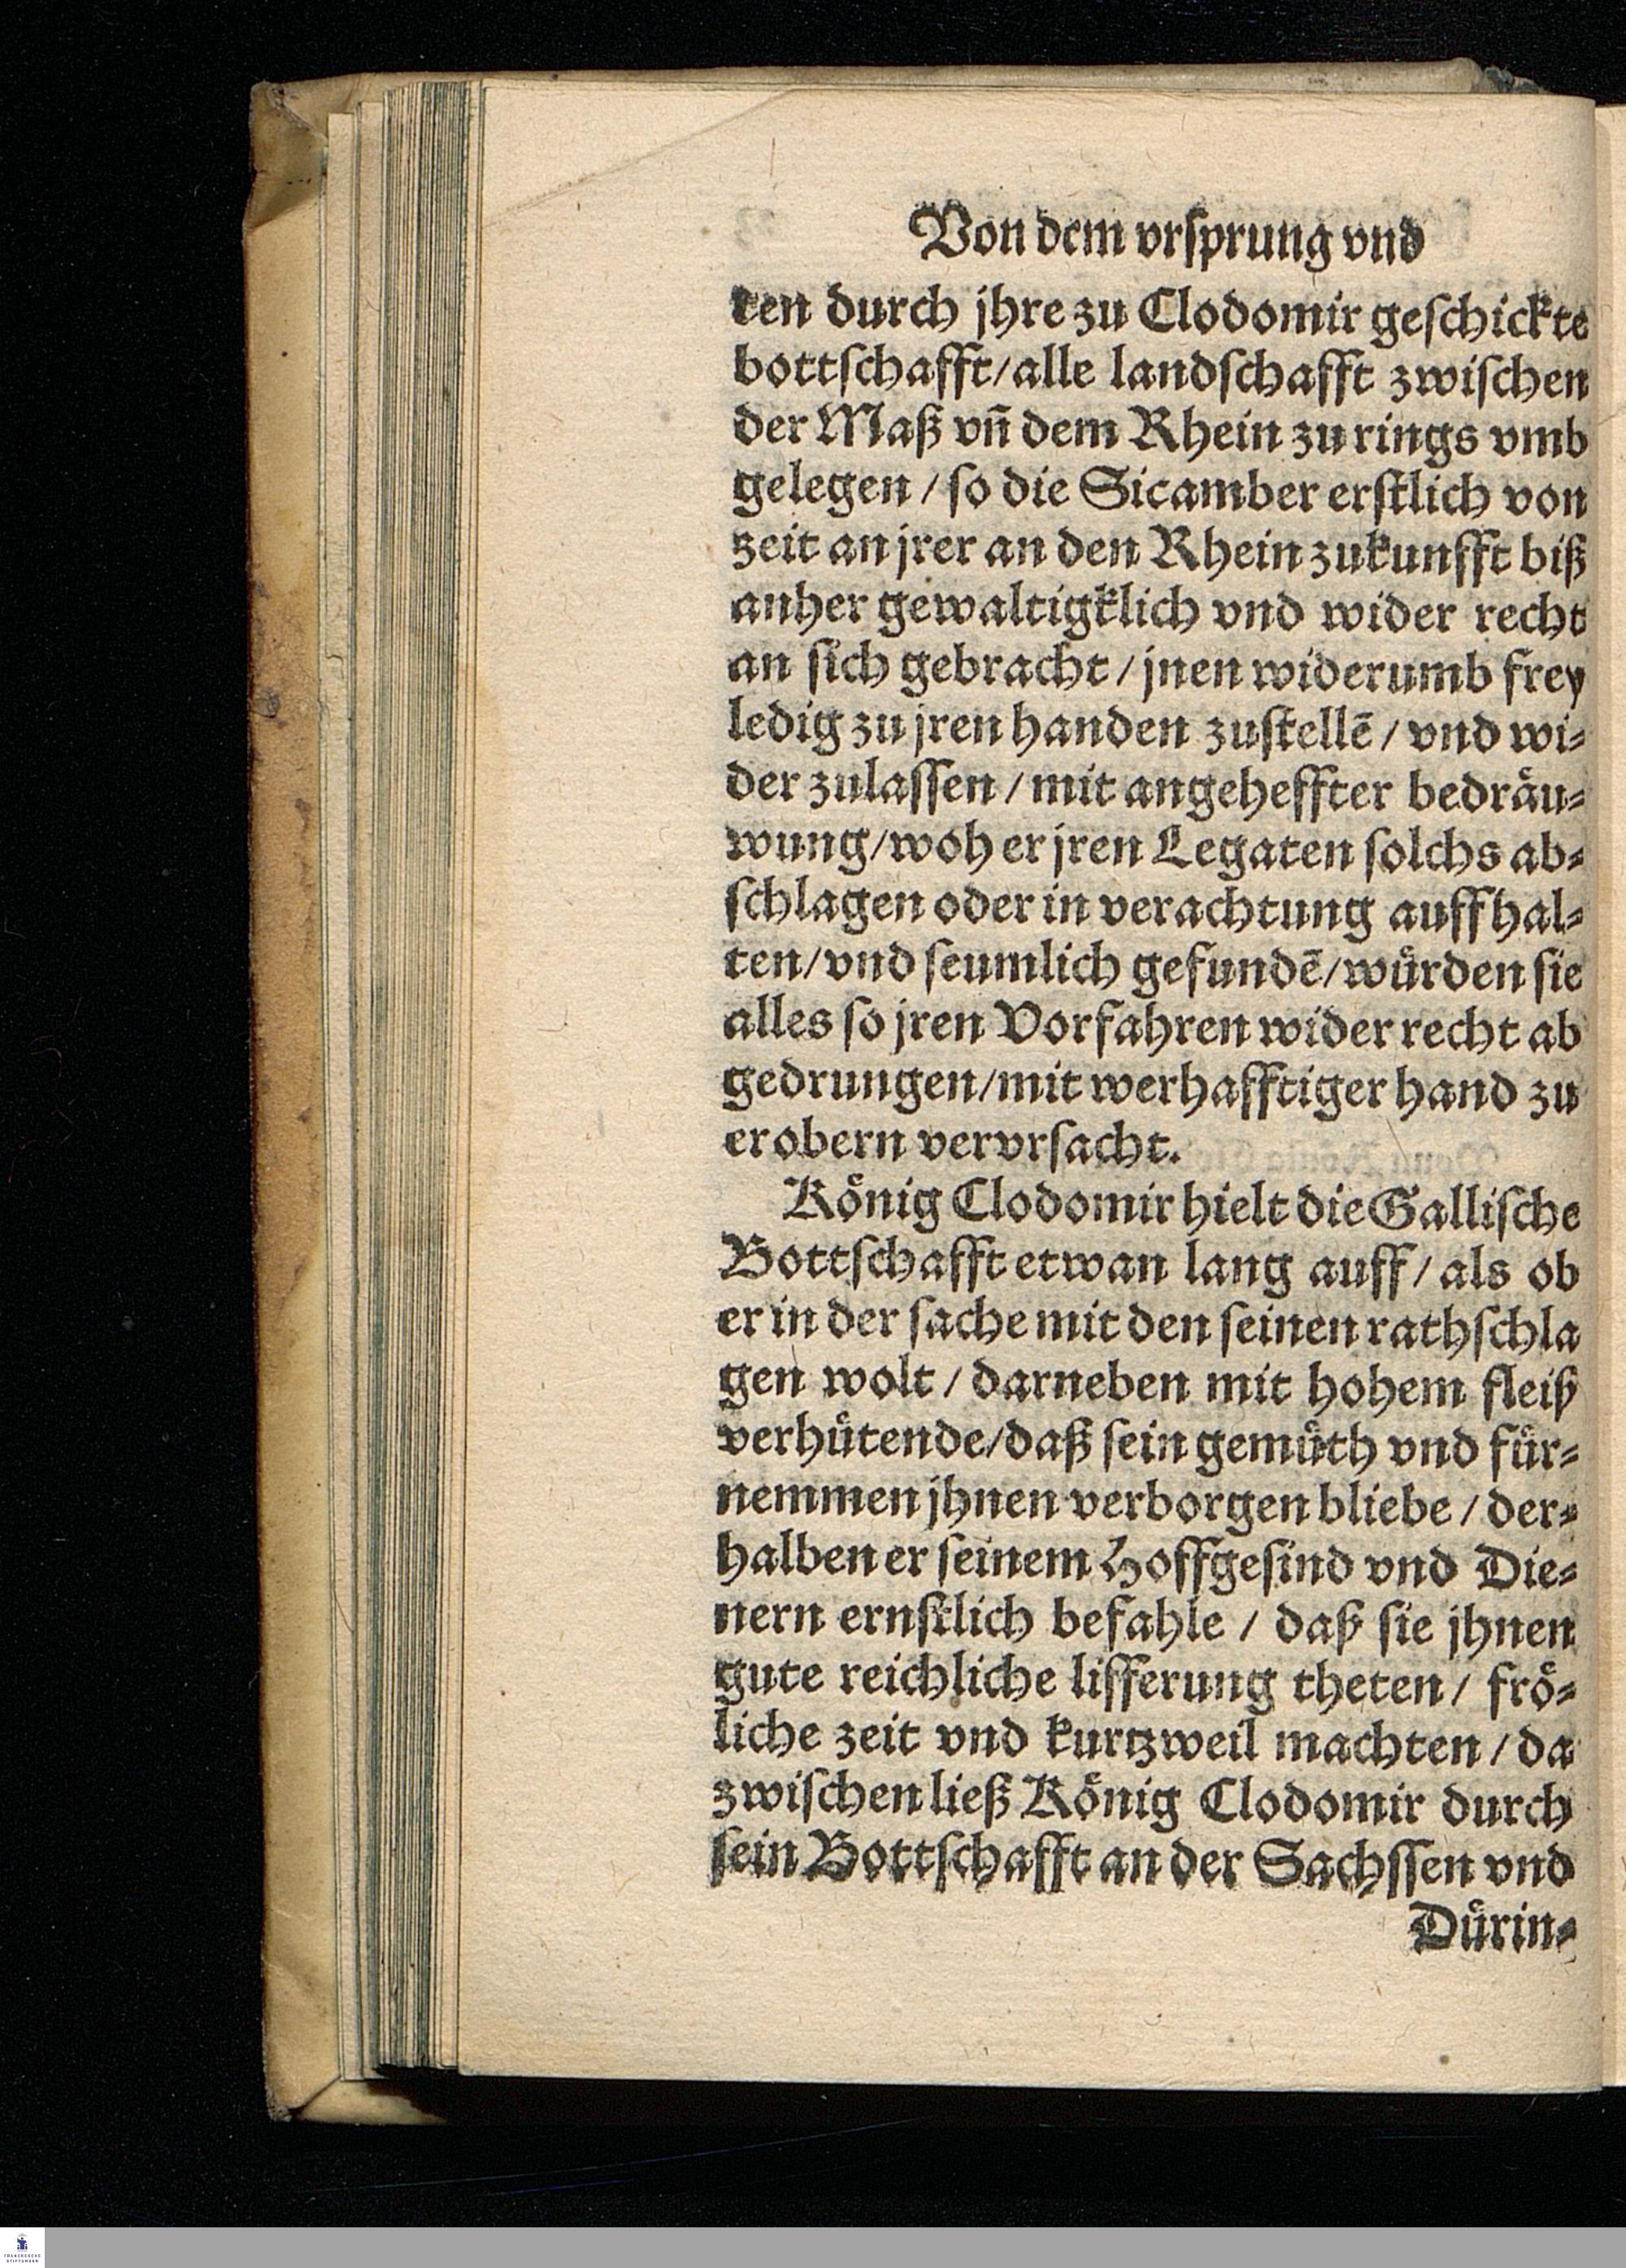 Von dem vrsprung vnd
ten durch jhre zu Clodomir geschickte
bottschafft/alle landschafft zwischen
der Maß vn̄ dem Rhein zu rings vmb
gelegen / so die Sicamber erstlich von
zeit an jrer an den Rhein zukunfft biß
anher gewaltigklich vnd wider recht
an sich gebracht / jnen widerumb frey
ledig zu jren handen zustellē / vnd wi⸗
der zulassen / mit angeheffter bedräu⸗
wung/woh er jren Legaten solchs ab⸗
schlagen oder in verachtung auffhal⸗
ten/vnd seumlich gefundē/würden sie
alles so jren Vorfahren wider recht ab
gedrungen/mit werhafftiger hand zu
erobern vervrsacht.
König Clodomir hielt die Gallische
Bottschafft etwan lang auff/ als ob
er in der sache mit den seinen rathschla
gen wolt / darneben mit hohem fleiß
verhütende/daß sein gemüth vnd für⸗
nemmen jhnen verborgen bliebe / der⸗
halben er seinem Hoffgesind vnd Die⸗
nern ernstlich befahle / daß sie jhnen
gute reichliche lifferung theten/ frö⸗
liche zeit vnd kurtzweil machten / da
zwischen ließ König Clodomir durch
sein Bottschafft an der Sachssen vnd
Dürin⸗